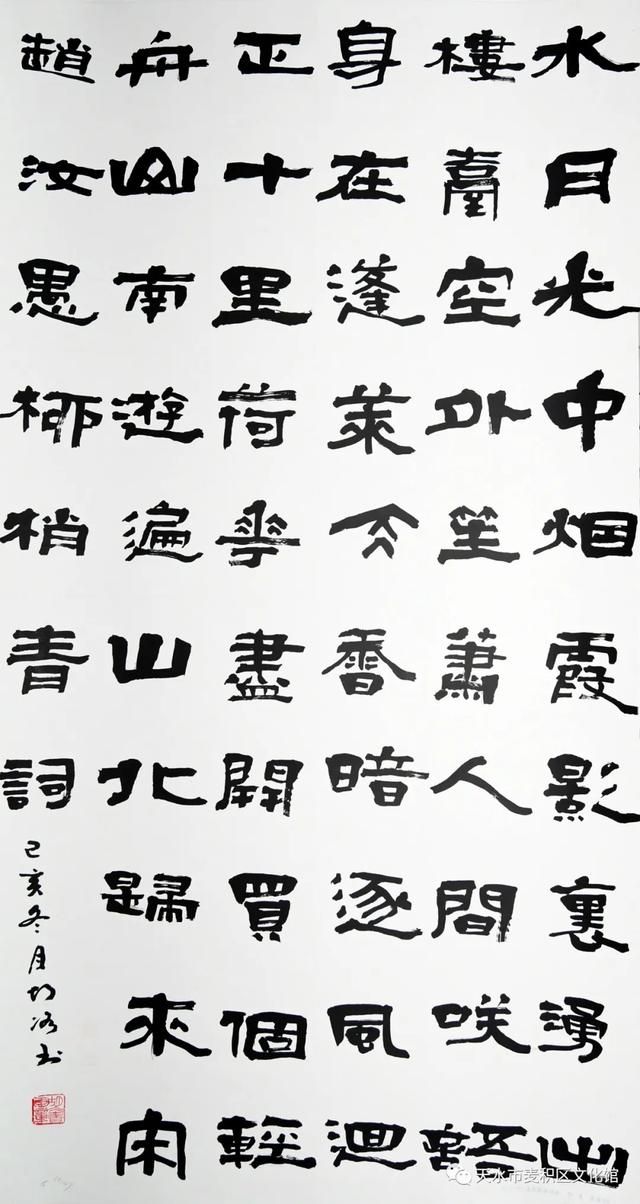 水月光中烟霞影裏湧出
樓臺空外笙蕭人間咲語
身在蓬萊天香暗逐風迴
正十里荷花盡開買個輕
舟山南遊遍山北歸來宋
趙汝愚柳梢青詞
己亥冬月书
天水市麦积区文化馆